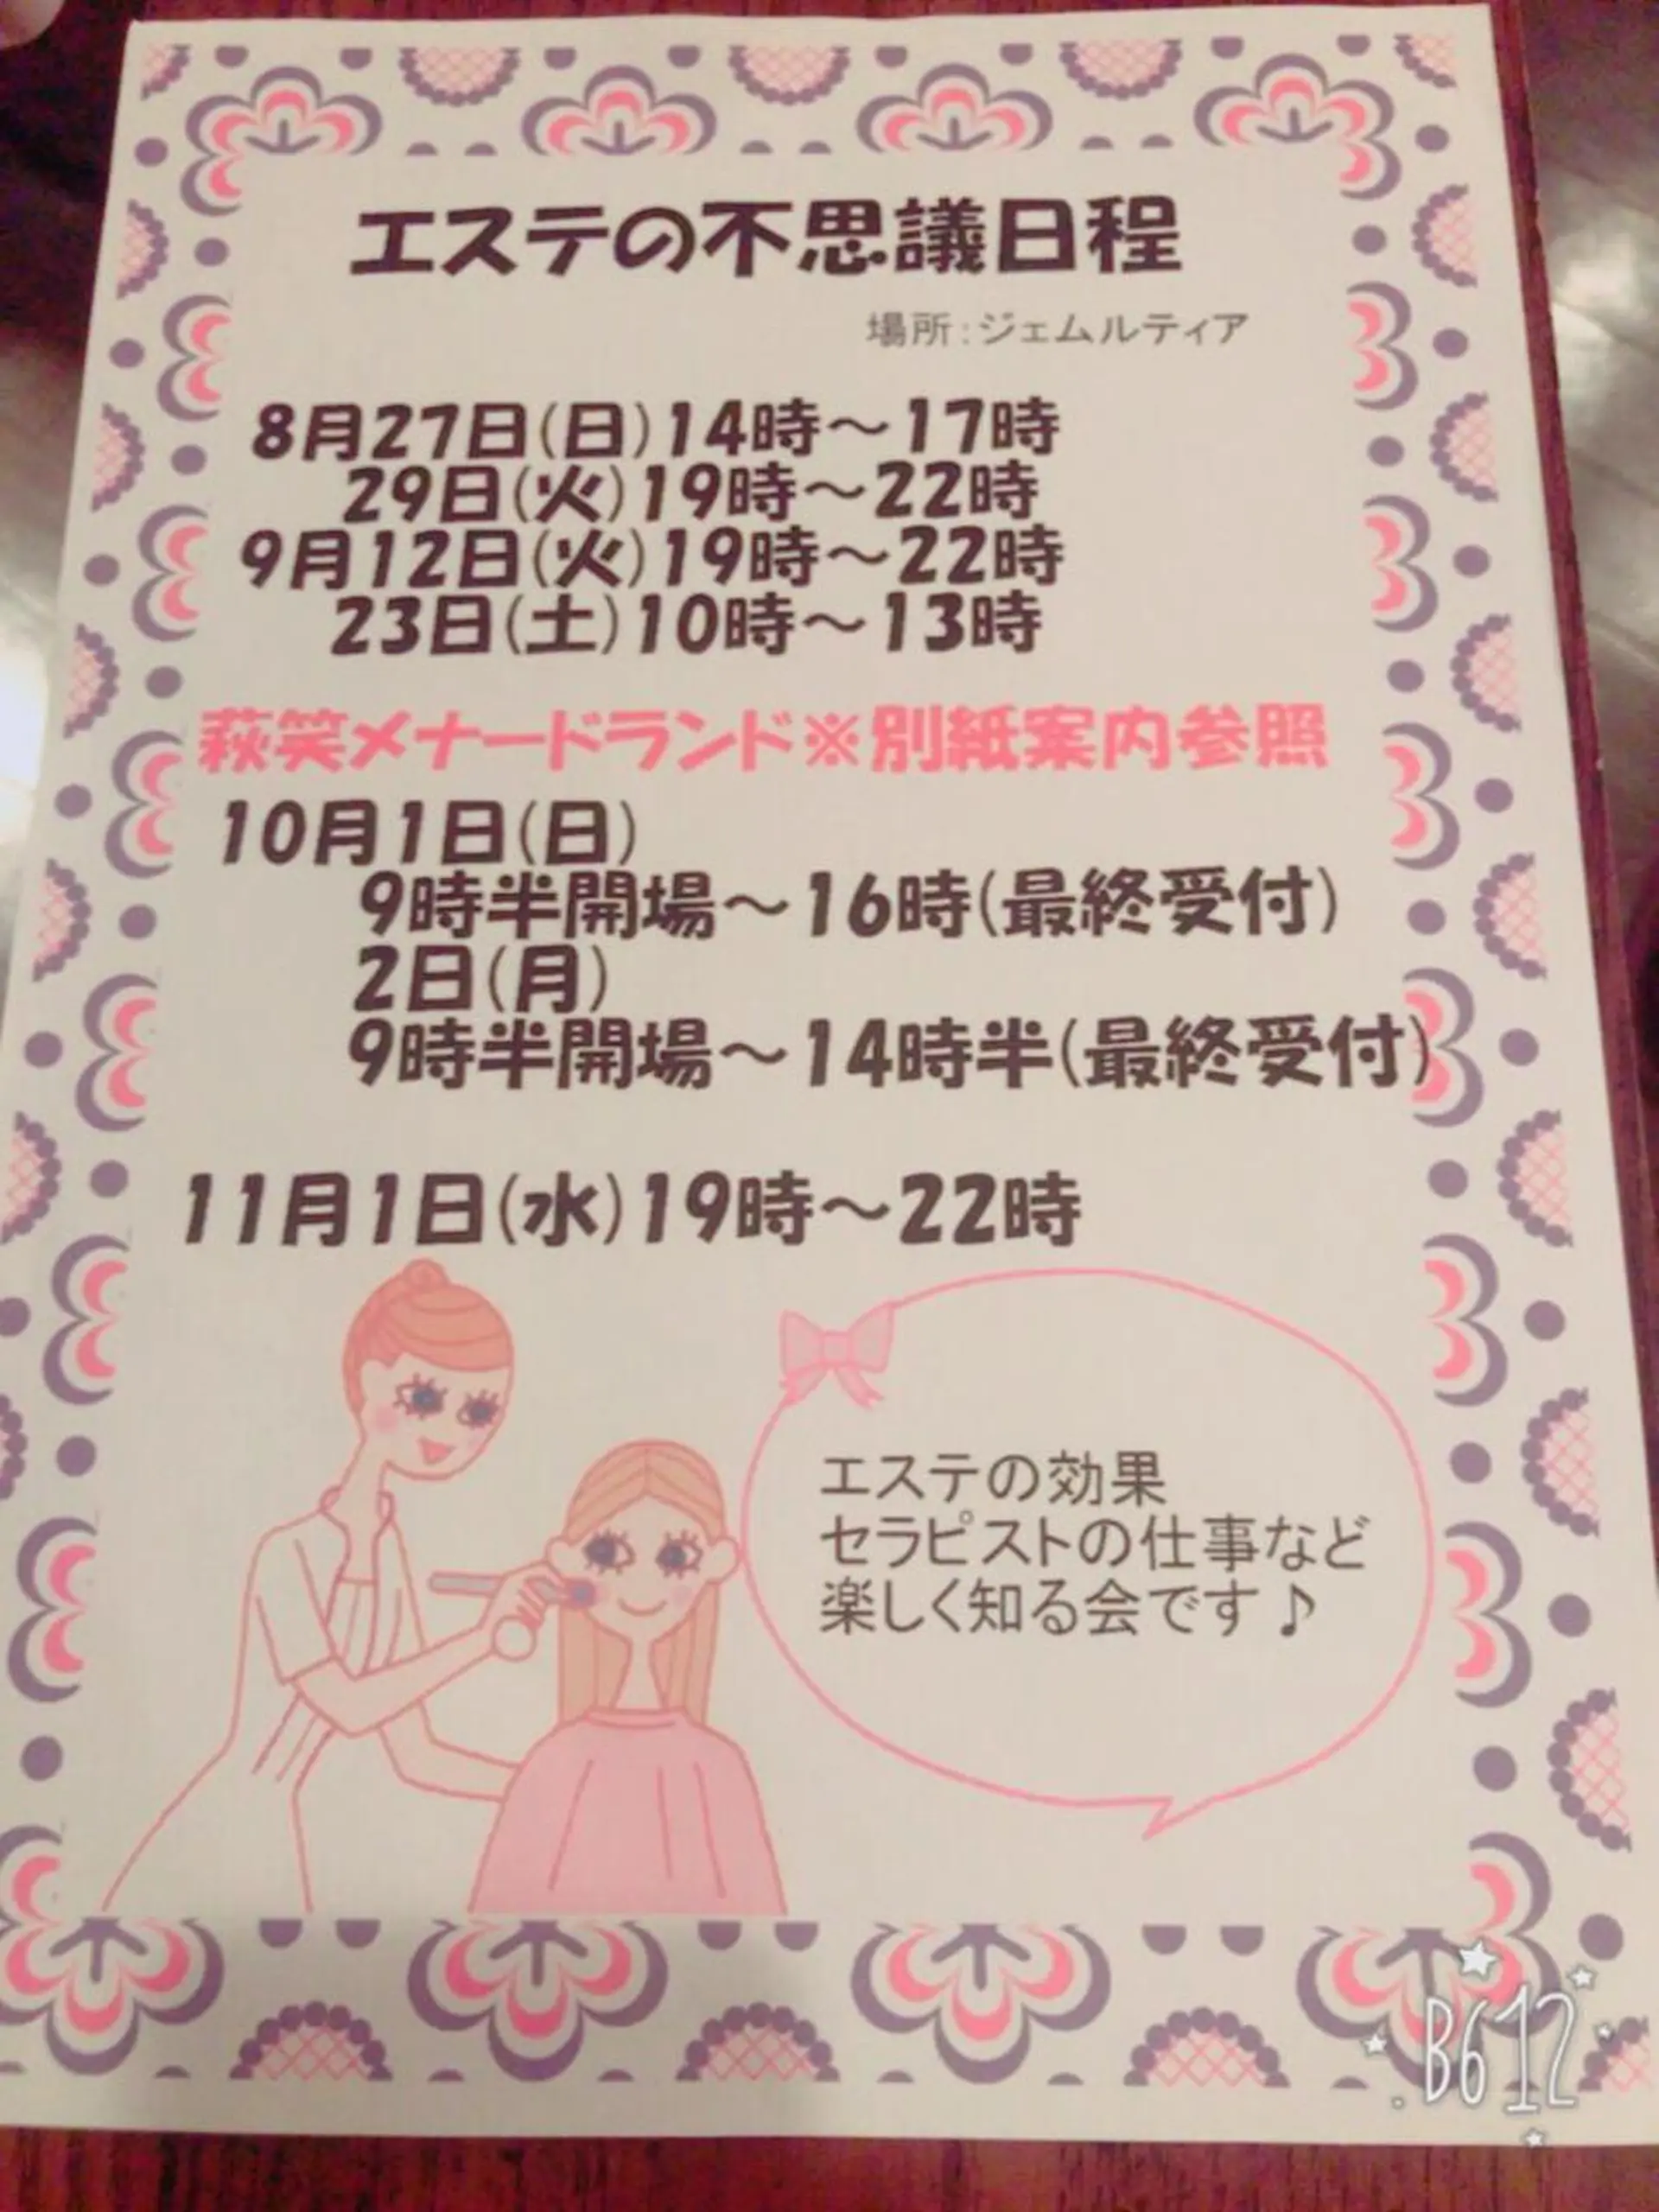 エステの不思議日程
場所:ジェムルティア
8月27日(日)14時〜17時
29日(火)19時〜22時
9月12日(火)19時〜22時
23日(土)10時〜13時
萩笑メナードランド※別紙案内参照
10月1日(日)
9時半開場〜16時(最終受付)
2日(月)
9時半開場〜14時半(最終受付)
11月1日(水)19時〜22時
エステの効果
セラピストの仕事など
楽しく知る会です♪
B612